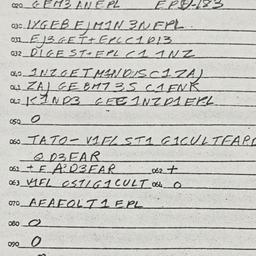 020 GEM3ANEPL EPD-1&3
030 IXGEBEJMIN3NEPL
031 EJ3GET+EPLCC1D13
032 DIGEST+EPLC1 1NZ
040 1NZGETMAND/SC1ZAJ
041 ZAJ GEBMT3S C1FNK
042 K1ND3 GEE1NZD1EPL
050 0
060 TATO-V1FLST1 G1CULTFARD
QD3FAR
061 +EA2D3FAR 062 +
063 V1FL OST1G1CULT 064 0
070 AFAFOLT1EPL
080 0
090 0